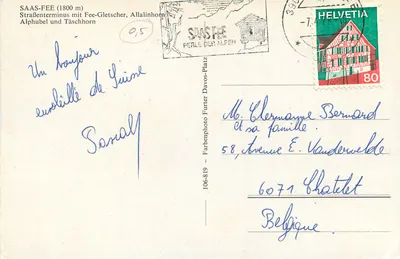 SAAS-FEE (1800 m)
Straßenterminus mit Fee-Gletscher, Allalinhorn
Alphubel und Täschhorn
0,5
SAAS FEE
PERLE DER ALPEN
HELVETIA
80
Un bonjour
ensoleillé de Suisse
Pascal
106-819 - Farbenphoto Furter Davos-Platz
M. Clermanne Bernard
et sa famille
58, Avenue E. Vandervelde
6071 Chatelet
Belgique